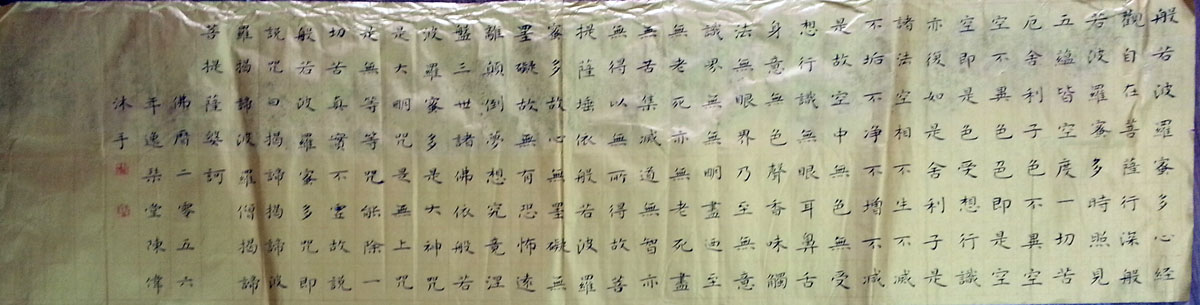 般若波羅蜜多心经
觀自在菩薩行深般
若波羅蜜多時照見
五蘊皆空度一切苦
厄舍利子色不異空
空不異色色即是空
空即是色受想行識
亦復如是舍利子是
諸法空相不生不滅
不垢不净不增不減
是故空中無色無受
想行識無眼耳鼻舌
身意無色聲香味觸
法無眼界乃至無意
識界無無明盡迺至
無老死亦無老死盡
無苦集滅道無智亦
無得以無所得故菩
提薩埵依般若波羅
蜜多故心無罣礙無
罣礙故無有恐怖遠
離顛倒夢想究竟涅
盤三世諸佛依般若
波羅蜜多是大神咒
是大明咒是無上咒
是無等等咒能除一
切苦真實不虛故説
般若波羅蜜多咒即
說咒曰揭諦揭諦波
羅揭諦波羅僧揭諦
菩提薩婆訶
佛曆二零五六
年逸琹堂陳偉
沐手